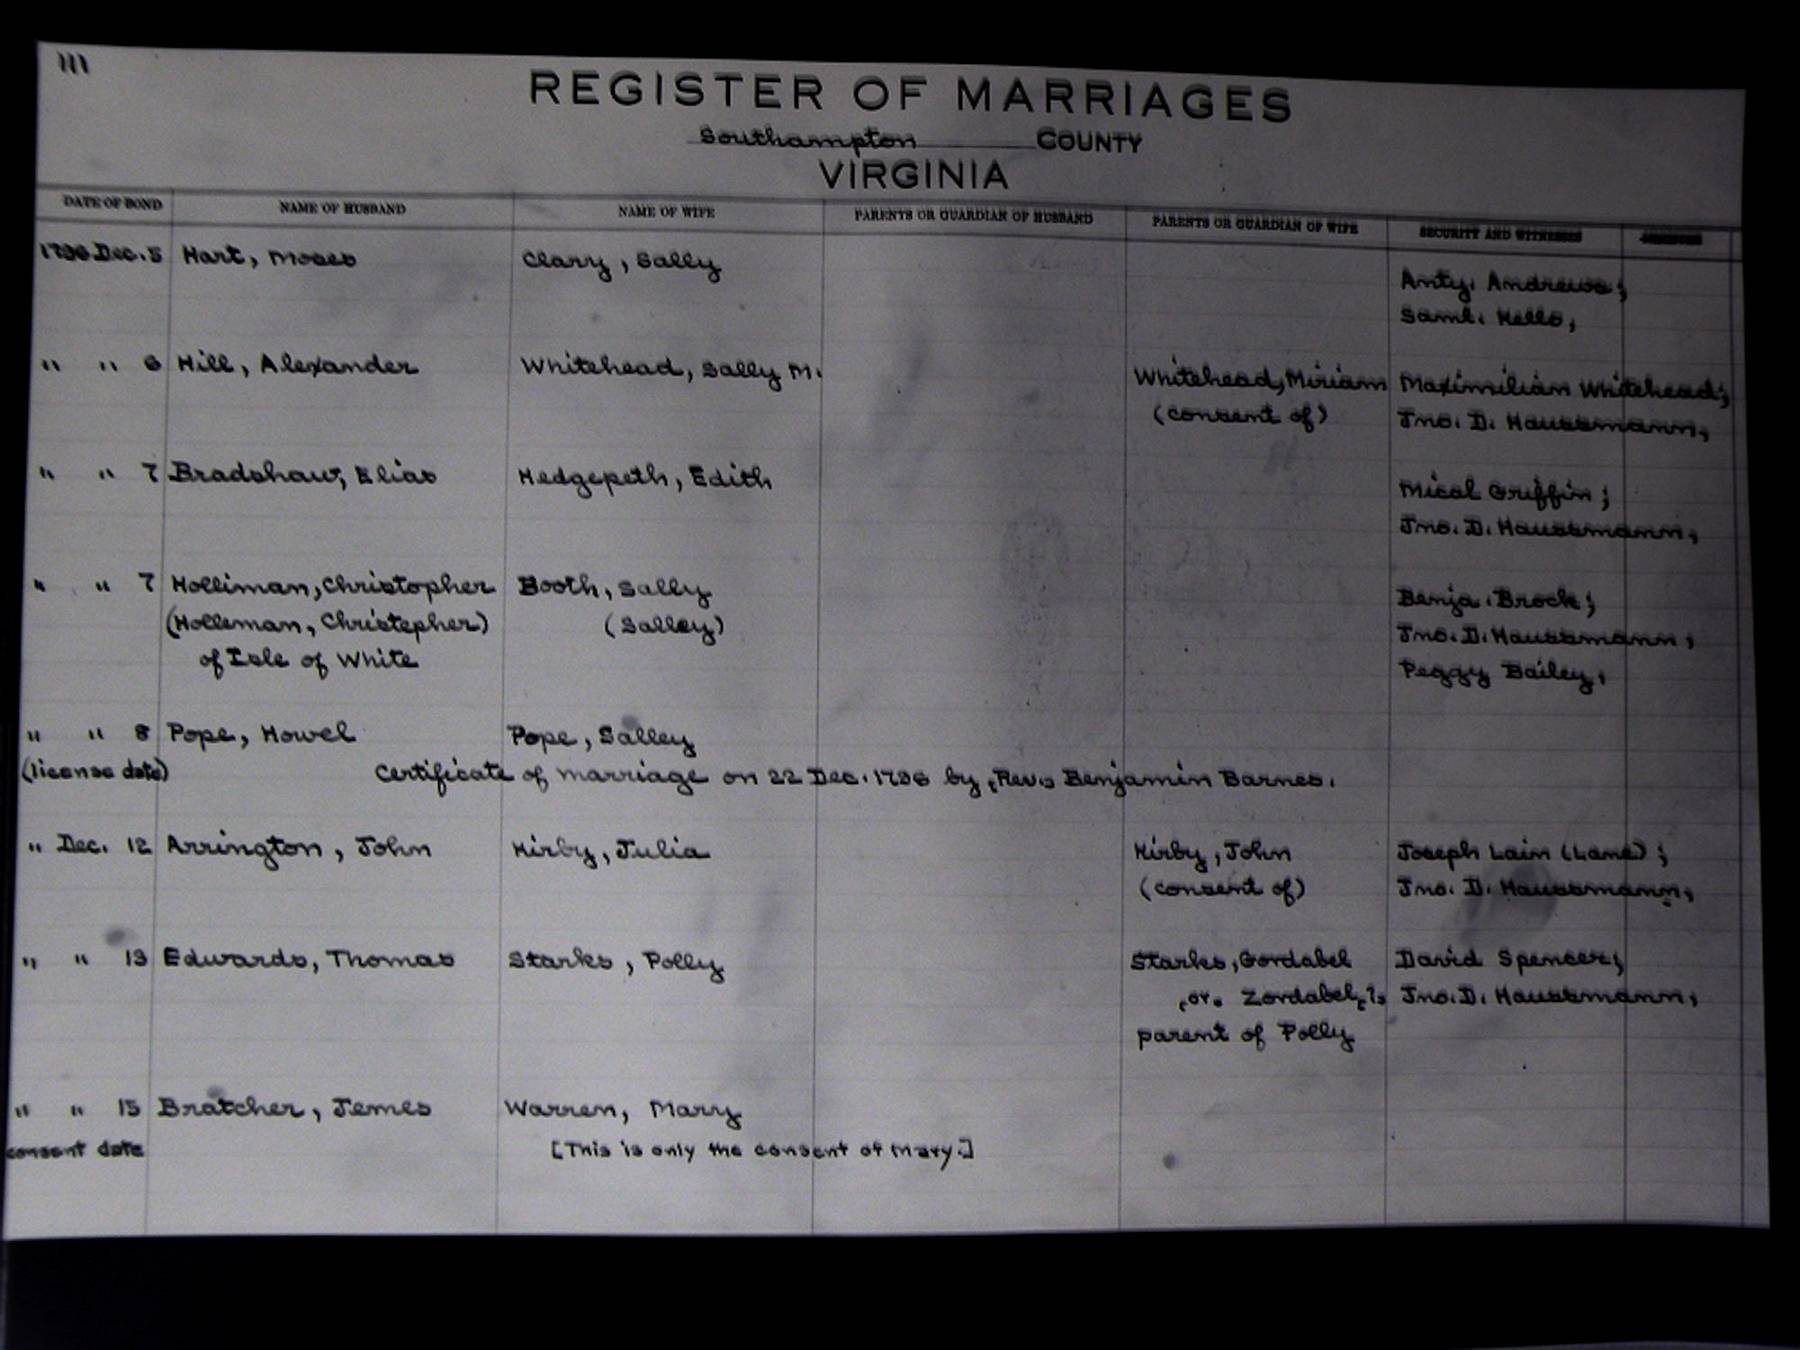 111
REGISTER OF MARRIAGES
Southampton COUNTY
VIRGINIA
DATE OF BOND NAME OF HUSBAND NAME OF WIFE PARENTS OR GUARDIAN OF HUSBAND PARENTS OR GUARDIAN OF WIFE SECURITY AND WITNESSES
1796 Dec. 5 Hart, Moses Clary, Sally
Anty. Andrews;
Saml. Kello,
" " 6 Hill, Alexander Whitehead, Sally M. Whitehead, Miriam Maximilian Whitehead;
(consent of) Jno. D. Haussmann,
" " 7 Bradshaw, Elias Hedgepeth, Edith Mical Griffin;
Jno. D. Haussmann,
" " 7 Holliman, Christopher Booth, Sally Benja. Brock;
(Holleman, Christepher) (Salley) Jno. D. Haussmann;
of Isle of White Peggy Bailey,
" " 8 Pope, Howel Pope, Salley
(license date) Certificate of marriage on 22 Dec. 1796 by [Rev.] Benjamin Barnes.
" Dec. 12 Arrington, John Kirby, Julia Kirby, John Joseph Lain (Lane);
(consent of) Jno. D. Haussmann,
" " 13 Edwards, Thomas Starks, Polly Starks, Gordabel David Spencer;
[or] Zordabel[?] Jno. D. Haussmann,
parent of Polly
" " 15 Bratcher, Jemes Warren, Mary
consent date [This is only the consent of Mary.]